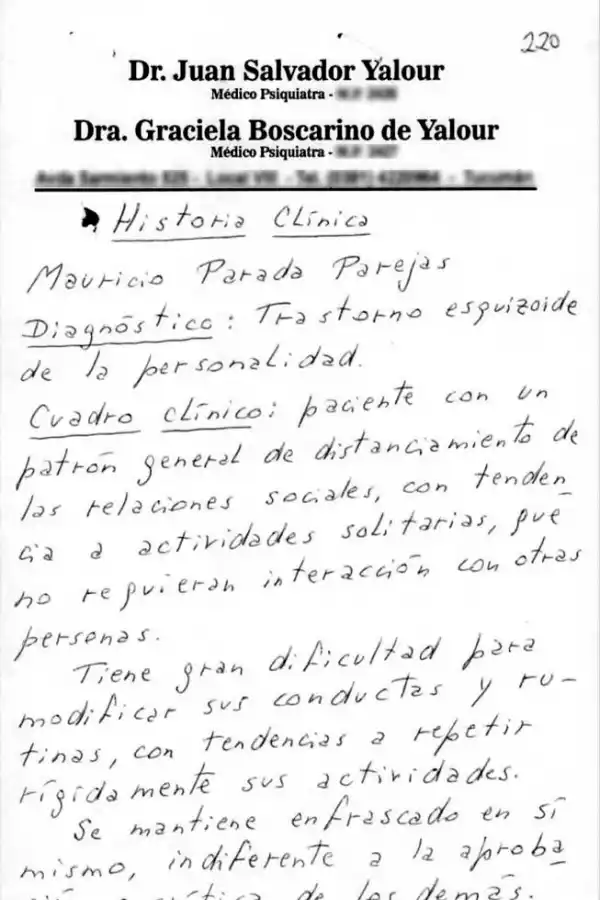 220
Dr. Juan Salvador Yalour
Médico Psiquiatra -
Dra. Graciela Boscarino de Yalour
Médico Psiquiatra -
Historia Clínica
Mauricio Parada Parejas
Diagnóstico: Trastorno esquizoide
de la personalidad.
Cuadro clínico: paciente con un
patrón general de distanciamiento de
las relaciones sociales, con tenden
cia a actividades solitarias, que
no requieran interacción con otras
personas.
Tiene gran dificultad para
modificar sus conductas y ru-
tinas, con tendencias a repetir
rígidamente sus actividades.
Se mantiene enfrascado en sí
mismo, indiferente a la aproba
de los demás.